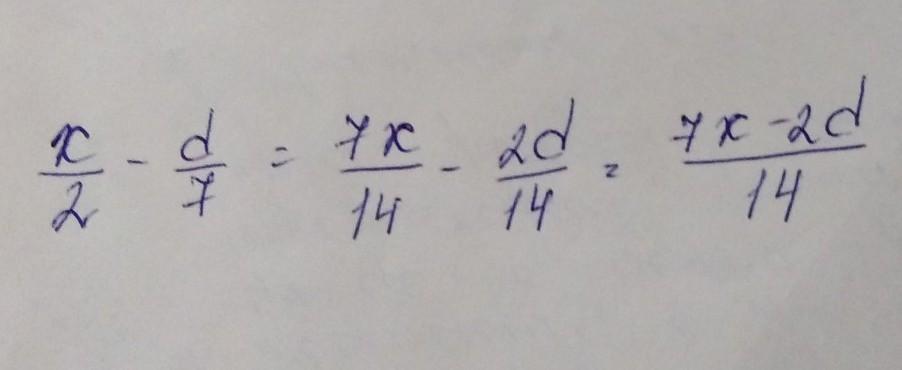 x/2 - d/7 = 7x/14 - 2d/14 = 7x-2d/14